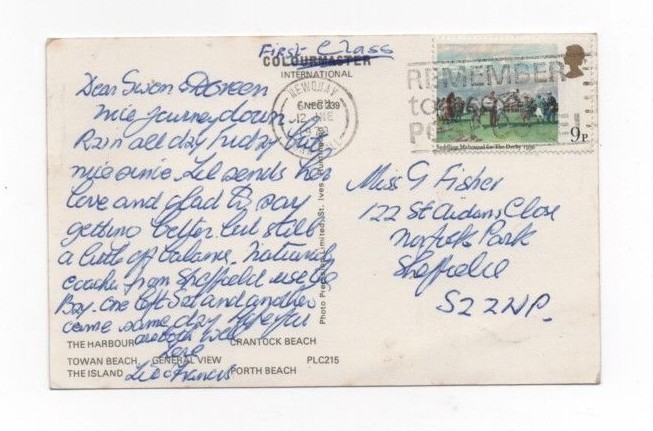 First Class
COLOURMASTER
INTERNATIONAL
NEWQUAY
REMEMBER
to use
PO
9P
Saddling Mahmoud for The Derby 1936
Dear Gwen & Doreen
nice journey down
Rain all day Friday but
nice since. Lil sends her
love and glad to say
getting better but still
a little off balance.
coaches from Sheffield use
Bay. One left Sat and another
came same day Hope you
are both well
Love
Lil & Francis
Miss G Fisher
122 St Aidans Close
Norfolk Park
Sheffield
S2 2NP.
Photo Precision Limited, St. Ives
THE HARBOUR CRANTOCK BEACH
TOWAN BEACH, GENERAL VIEW PLC215
THE ISLAND PORTH BEACH